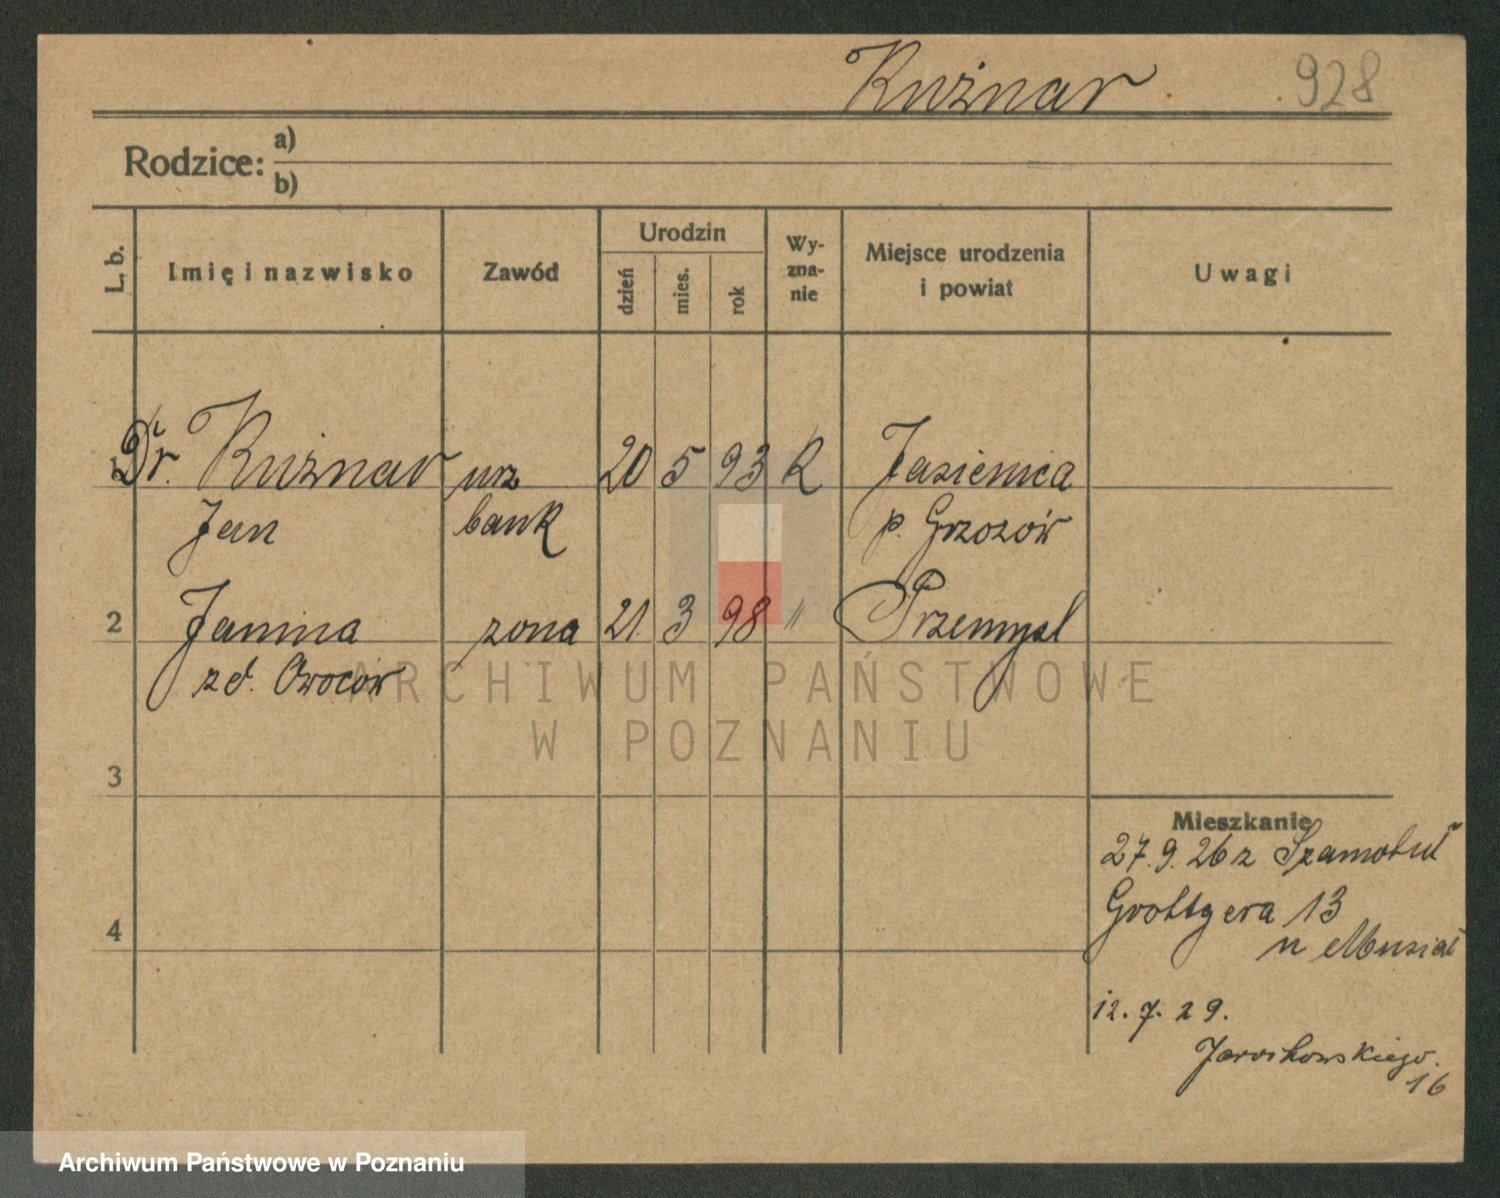 Kuźnar. 928
Rodzice:
a)
b)
L. b. Imię i nazwisko Zawód Urodzin dzień mies. rok Wyzna-nie Miejsce urodzenia i powiat Uwagi
Dr. Kuźnar urz 20 5 93 K Jasienica
Jan bank p. Grzozów
2 Janina zona 21 3 98 " Przemysl
zd. Owoców
ARCHIWUM PAŃSTWOWE
W POZNANIU
3
Mieszkanie
27.9.26 z Szamotuł
4 Grottgera 13
u Musiał
12.7.29.
Jarochowskiego.
16
Archiwum Państwowe w Poznaniu